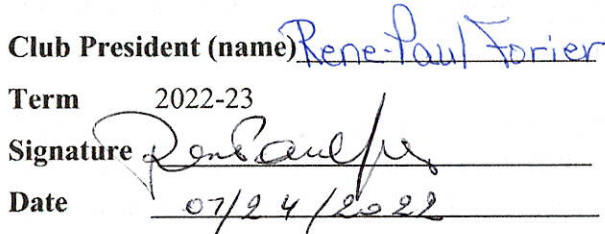 Club President (name) Rene-Paul Forier
Term 2022-23
Signature
Date 07/24/2022